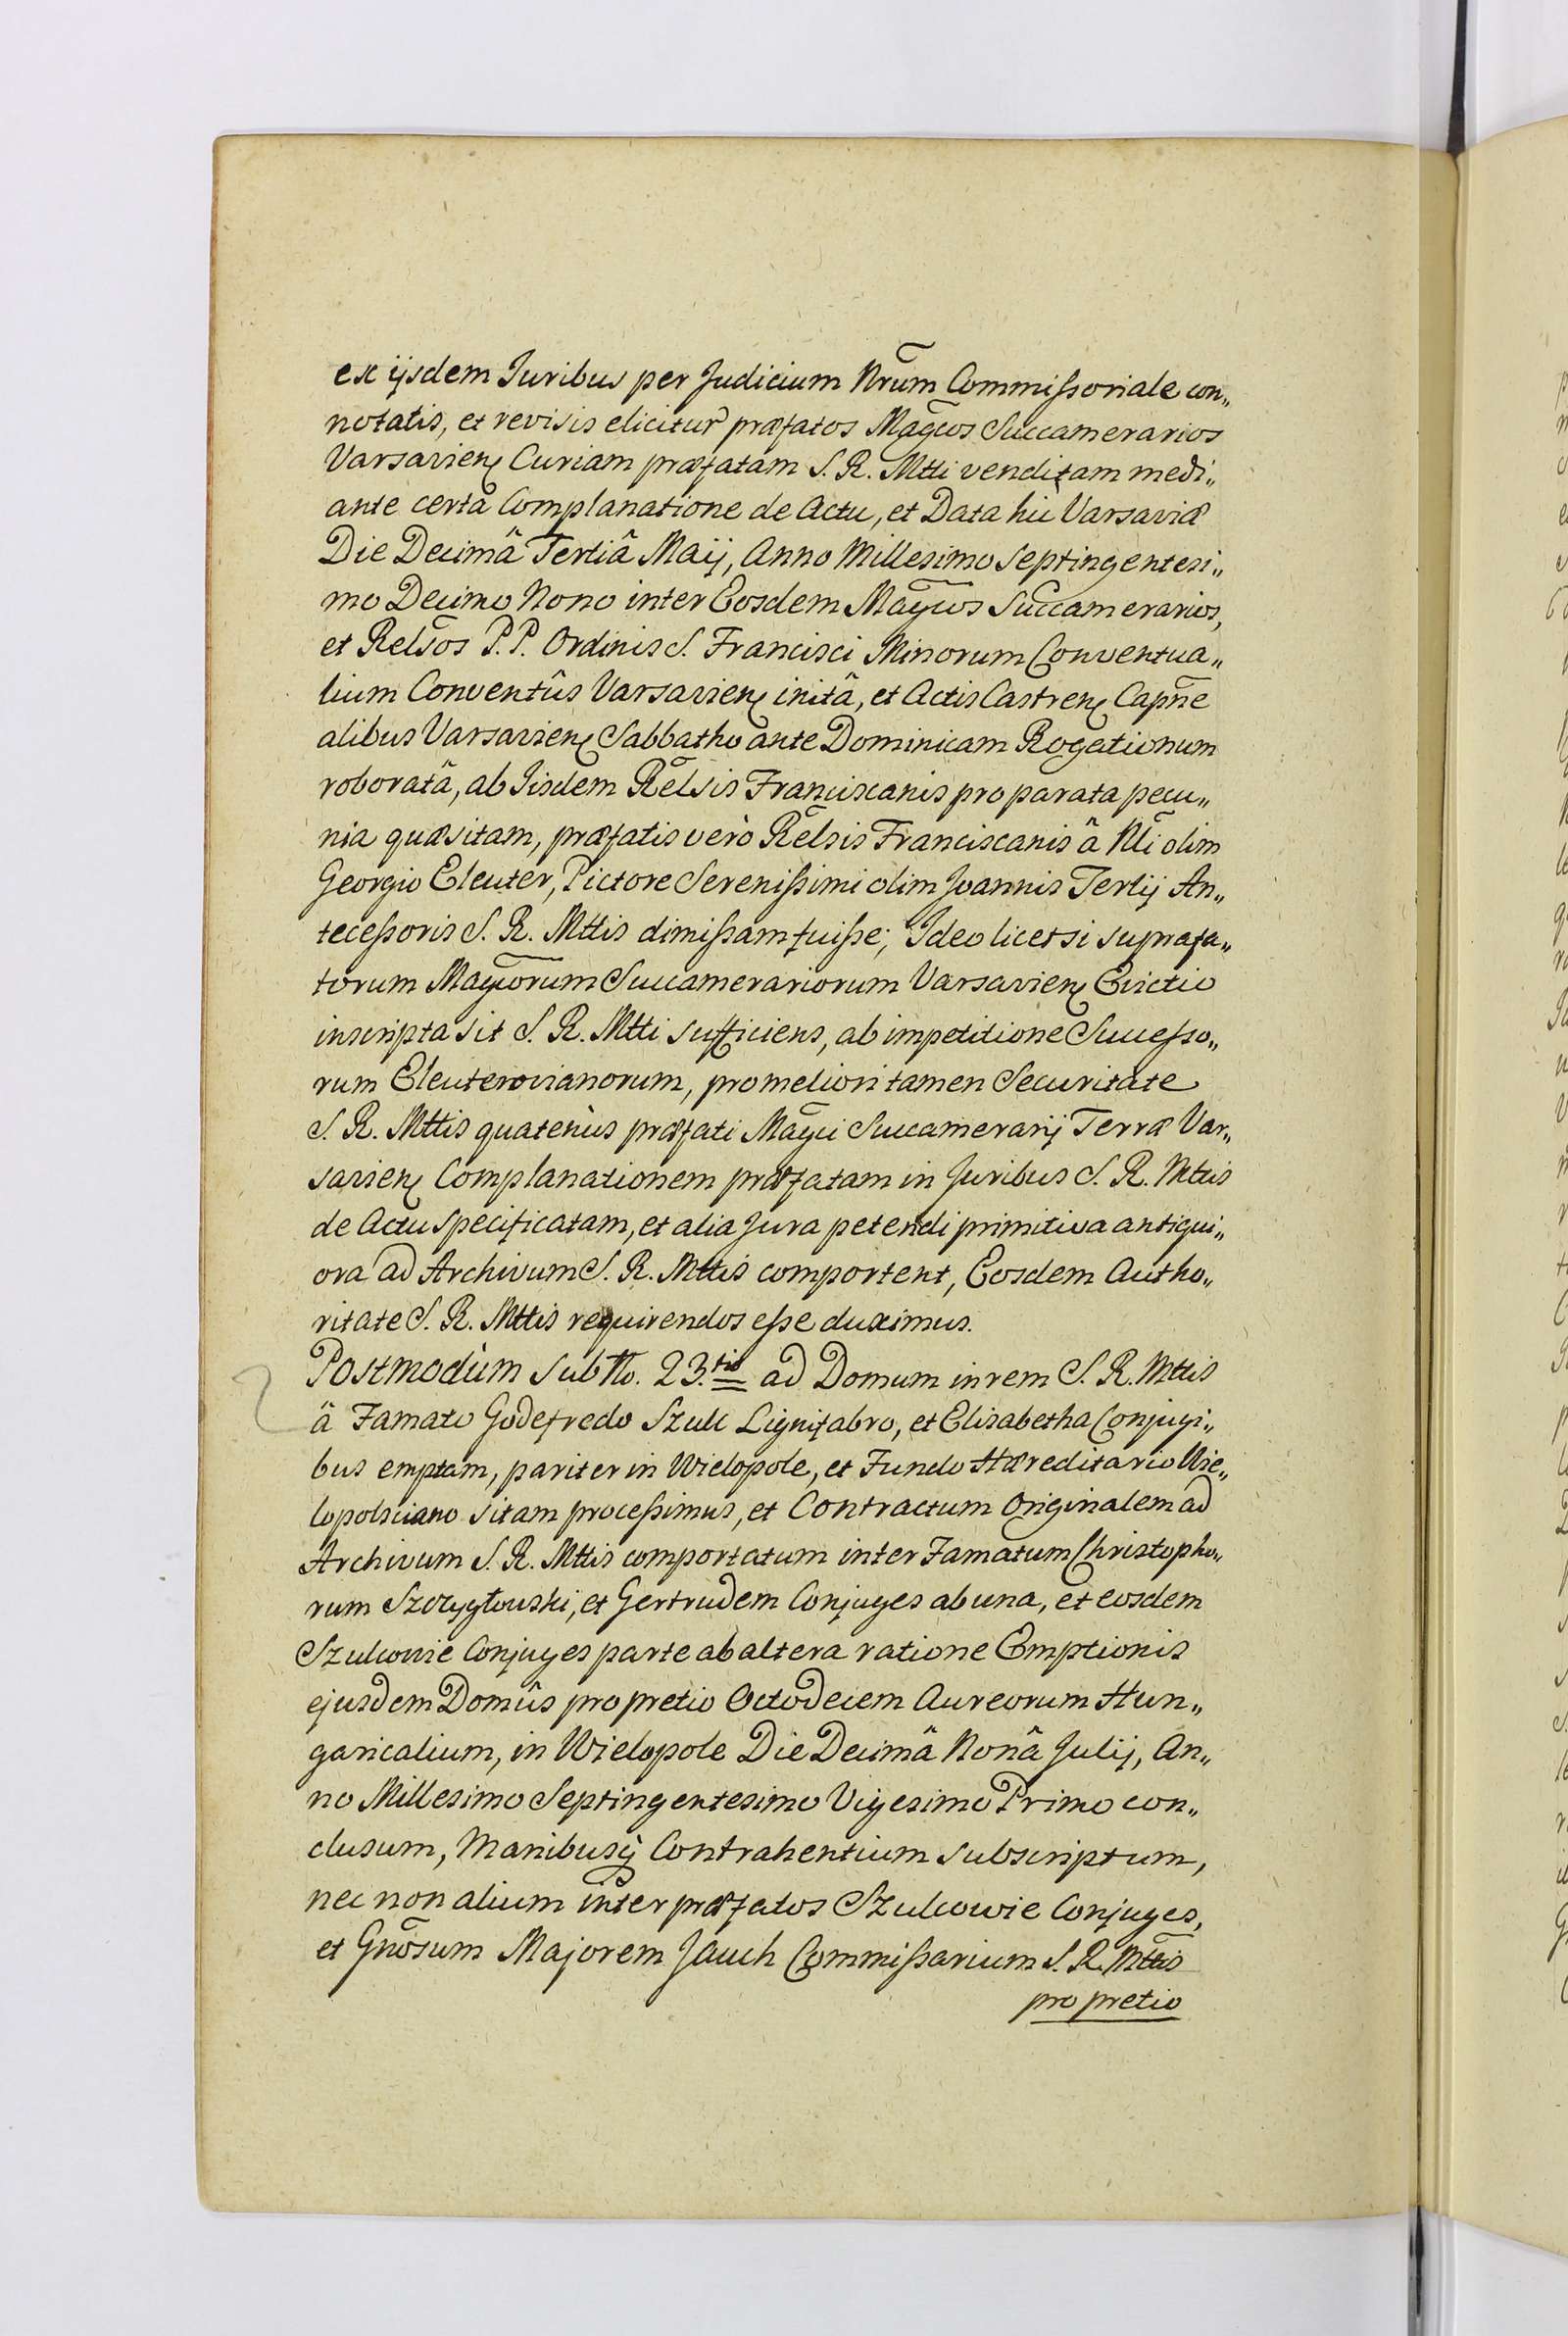 ex ijsdem Iuribus per Judicium Nrũm Commissoriale con„
notatis, et revisis elicitur præfatos Magcos Succamerarios
Varsavien̄ Curiam præfatam S. R. Mtti venditam medi„
ante certa Complanatione de Actu, et Data hìc Varsaviæ
Die Decimâ Tertiâ Maij, Anno Millesimo Septingentesi„
mo Decimo Nono inter Eosdem Magcos Succamerarios,
et Relsõs P.P. Ordinis S. Francisci Minorum Conventua„
lium Conventûs Varsavien̄ initâ, et Actis Castren̄ Capñe
alibus Varsavien̄ Sabbatho ante Dominicam Rogationum
roboratâ, ab Iisdem Relsis Franciscanis pro parata pecu„
nia quæsitam, præfatis verò Relsis Franciscanis â Nli olim
Georgio Eleuter, Pictore Serenissimi olim Joannis Tertij An„
tecessoris S. R. Mttis dimissam fuisse; Ideo licet si suprafa„
torum Magcorum Succamerariorum Varsavien̄ Evictio
inscripta sit S. R. Mtti sufficiens, ab impetitione Successo„
rum Eleuterovianorum, pro meliori tamen Securitate
S. R. Mttis quatenùs præfati Magci Succamerarij Terræ Var„
savien̄ Complanationem præfatam in Juribus S. R. Mttis
de Actu specificatam, et alia Jura petendi primitiva antiqui„
ora ad Archivum S. R. Mttis comportent, Eosdem Autho„
ritate S. R. Mttis requirendos esse duximus.
Postmodùm sub No. 23.tio ad Domum in rem S. R. Mttis
â Famato Godefredo Szulc Lignifabro, et Elisabetha Conjugi„
bus emptam, pariter in Wielopole, et Fundo Hæreditario Wie„
lopolsciano sitam processimus, et Contractum Originalem ad
Archivum S. R. Mttis comportatum inter Famatum Christopho„
rum Szczygłowski, et Gertrudem Conjuges ab una, et eosdem
Szulcowie Conjuges parte ab altera ratione Emptionis
ejusdem Domûs pro pretio Octodecem Aureorum Hun„
garicalium, in Wielopole Die Decimâ Nonâ Julij, An„
no Millesimo Septingentesimo Vigesimo Primo con„
clusum, Manibusq̀ Contrahentium subscriptum,
nec non alium inter præfatos Szulcowie Conjuges,
et Gnõsum Majorem Jauch Commissarium S. R. Mttis
pro pretio